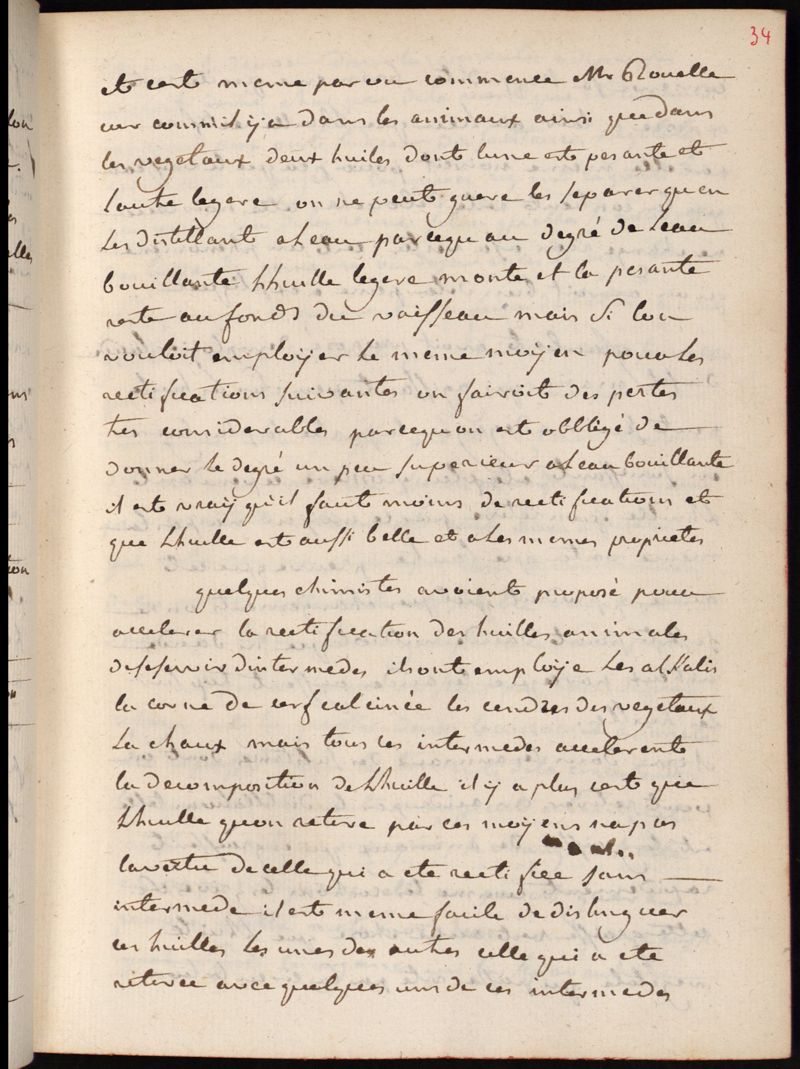 34
et cest meme par ou commence Mr Rouelle
car comme il y a dans les animaux ainsi que dans
les vegetaux deux huiles dont lune est pesante et
lautre legere on ne peut guere les separer quen
les distillant a leau parcequ au degré de leau
bouillante lhuille legere monte et la pesante
reste au fond du vaisseau mais si lon
vouloit employer le meme moyen pour les
rectifications suivantes on fairoit des pertes
tres considerables parcequ on est obbligé de
donner le degré un peu superieur a leau bouillante
il est vray qu'il faut moins de rectifications et
que lhuille est aussi belle et a les memes proprietes
quelques chimistes avoient proposé pour
accelerer la rectification des huilles animales
de sservir dintermedes ils ont employe les alkalis
la corne de cerf calcinée les cendres des vegetaux
la chaux mais tous ces intermedes accelerent
la decomposition de lhuille il y a plus cest que
lhuille quon retire par ces moyens na pas
la vertu de celle qui a ete rectifiée sans
intermede il est meme facile de distinguer
ces huilles les unes des autres celle qui a ete
retiree avec quelques uns de ces intermedes